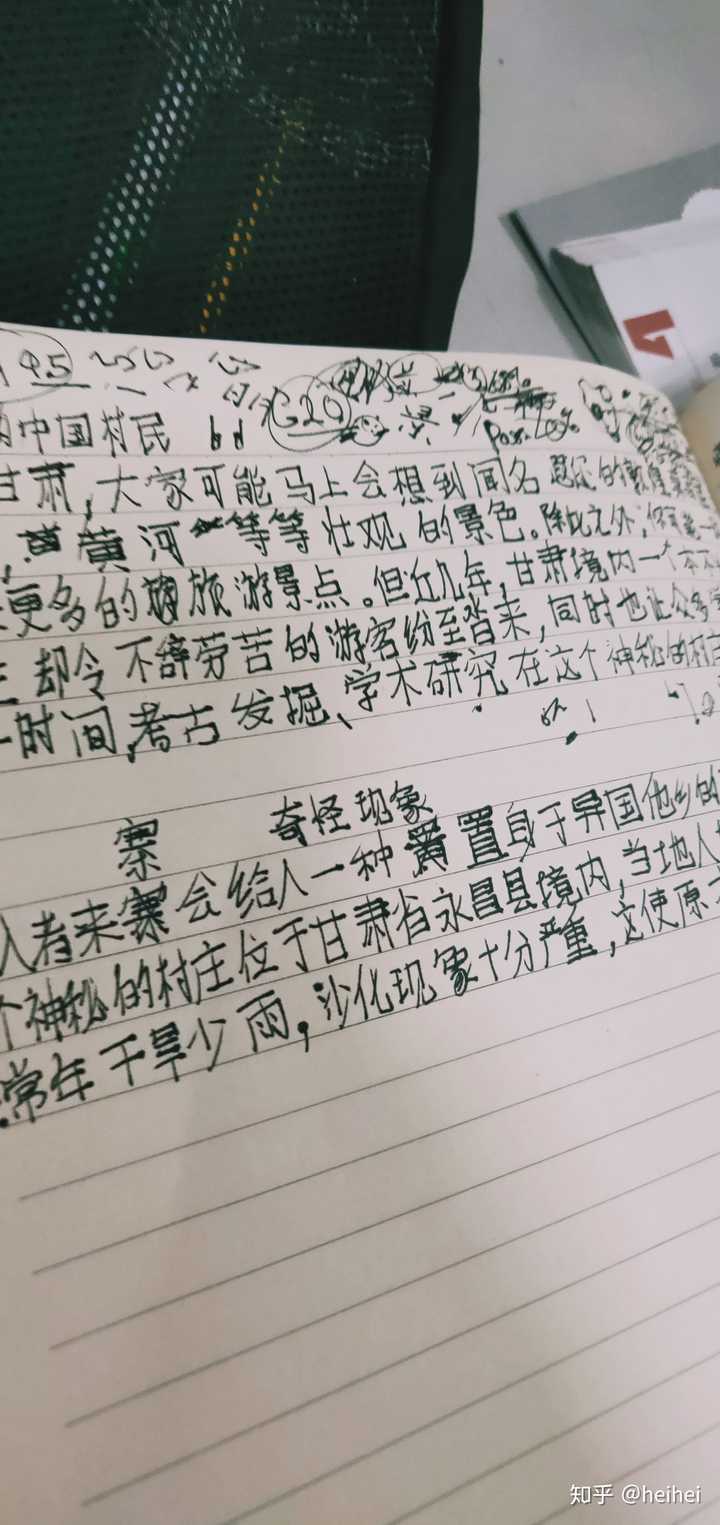 95
的中国村民 G20
甘肃,大家可能马上会想到闻名 的敦煌
,黄河 等等壮观的景色。除此之外,你可能一
更多的 旅游景点。但近几年,甘肃境内一个本不
却令不辞劳苦的游客纷至沓来,同时也让众多
一时间,考古发掘、学术研究在这个神秘的村庄
寨 奇怪现象
入者来寨会给人一种 置身于异国他乡的
个神秘的村庄位于甘肃省永昌县境内,当地人
常年干旱少雨,沙化现象十分严重,这使原
知乎 @heihei